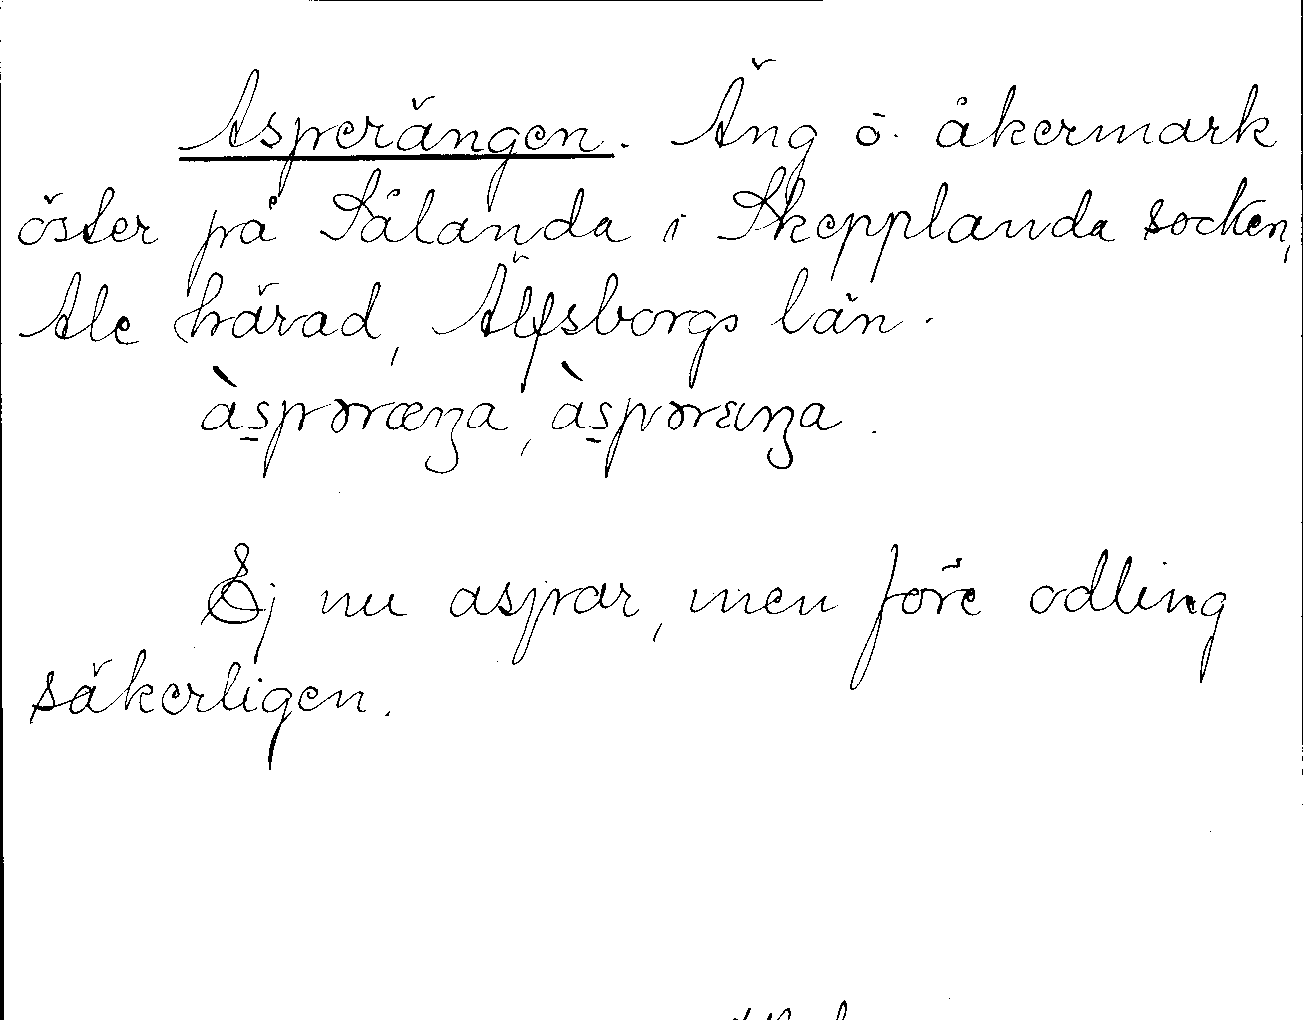 Asperängen. Äng o. åkermark
öster på Sålanda i Skepplanda socken,
Ale härad, Älfsborgs län.
àspəræŋa, àspərɛŋa.
Ej nu aspar, men före odling
säkerligen.